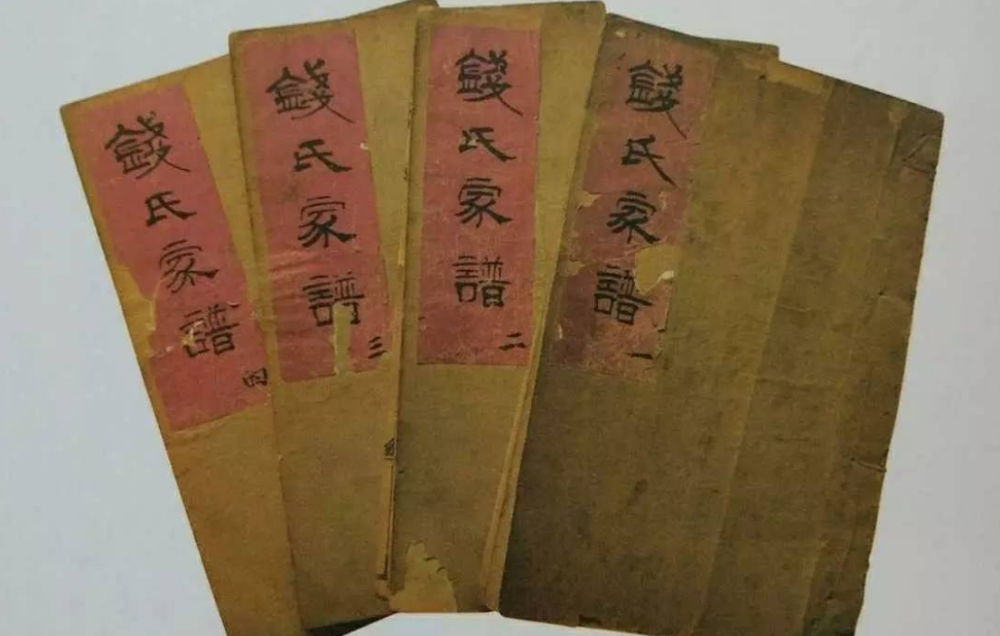 錢氏家譜 一
錢氏家譜 二
錢氏家譜 三
錢氏家譜 四